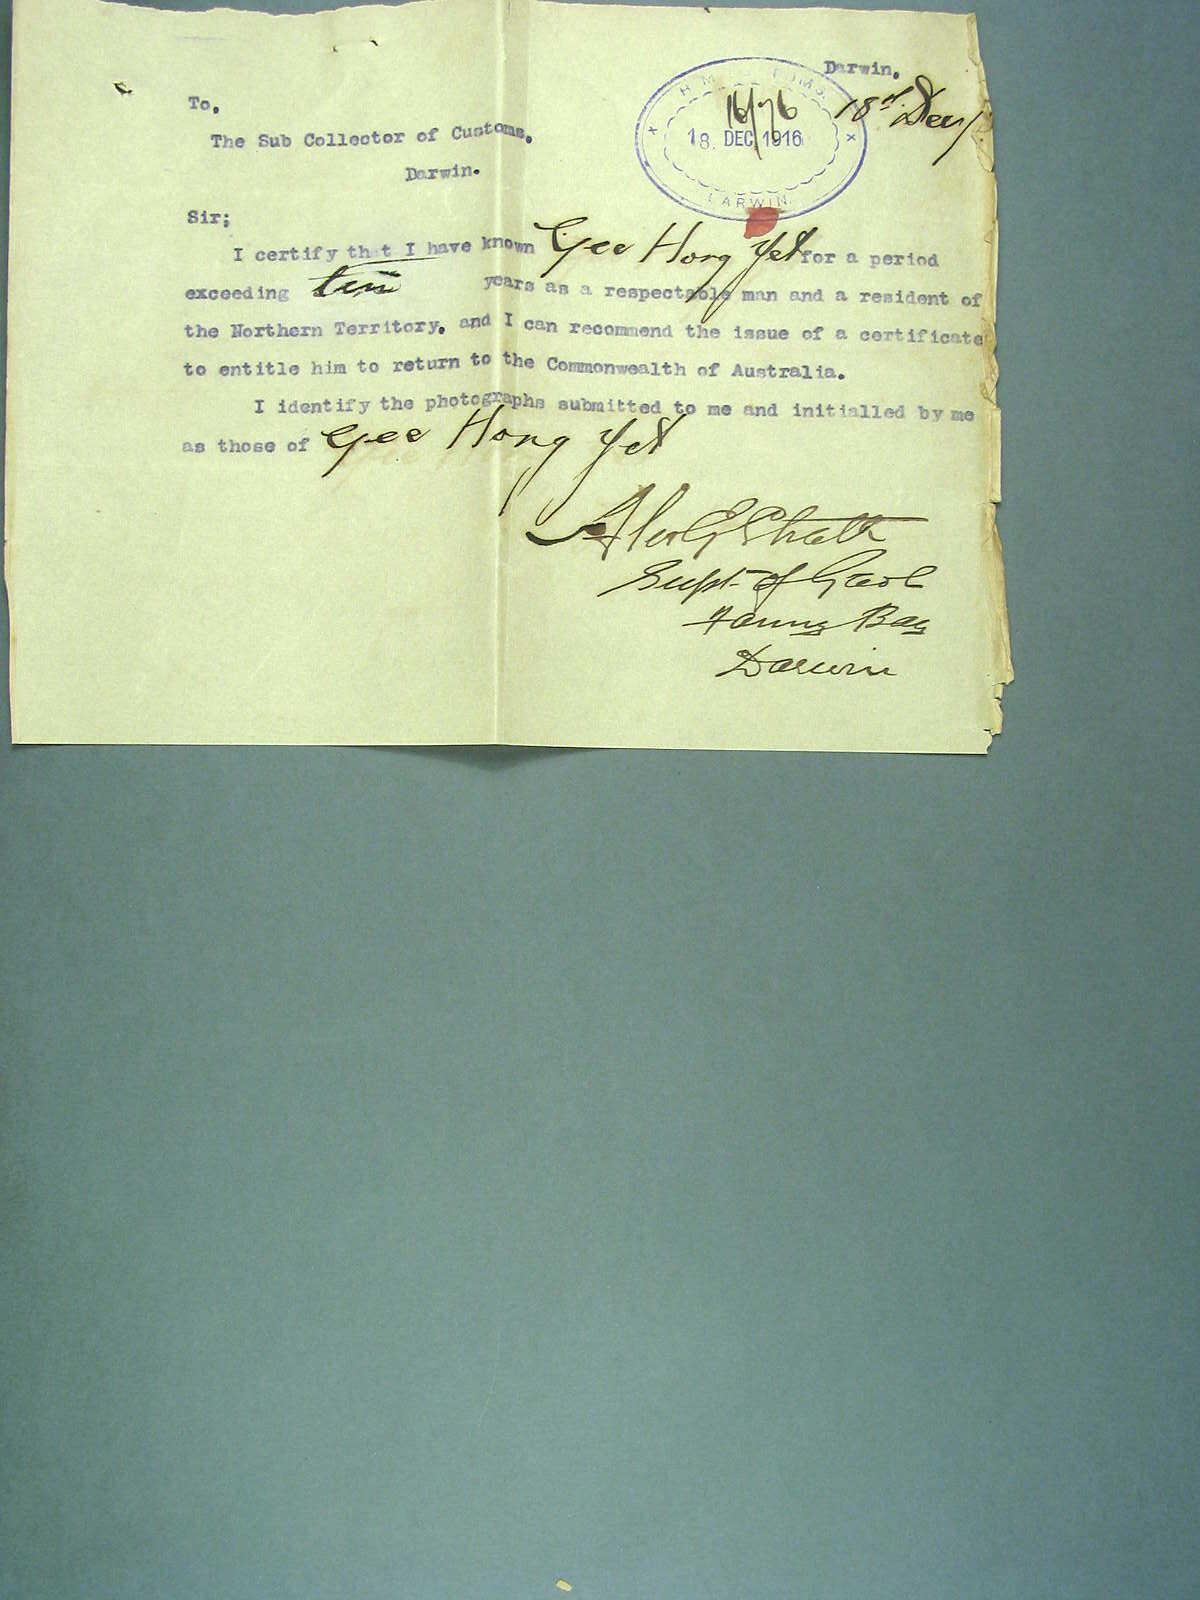 Darwin.
18th Dec/
H.M. CUSTOMS.
16/76
18. DEC 1916
DARWIN.
To.
The Sub Collector of Customs.
Darwin.
Sir;
I certify that I have known Gee Hong Yet for a period
exceeding ten years as a respectable man and a resident of
the Northern Territory. and I can recommend the issue of a certificate
to entitle him to return to the Commonwealth of Australia.
I identify the photographs submitted to me and initialled by me
as those of Gee Hong Yet
Supt of Gaol
Fanny Bay
Darwin